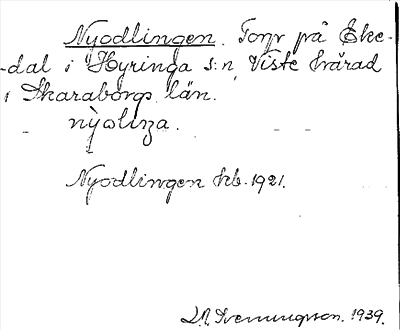 Nyodlingen. Torp på Eke-
-dal i Hyringa s:n, Viste härad
i Skaraborgs län.
Nyodlingen hb. 1921.
1939.